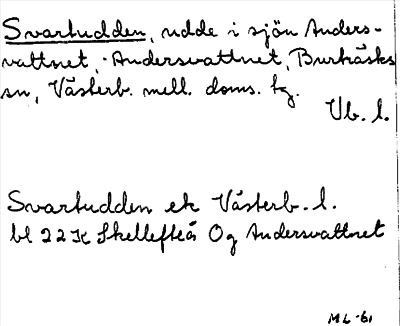 Svartudden, udde i sjön Anders-
vattnet, Andersvattnet, Burträsks
sn, Västerb. mell. doms. tg.
Vb. l.
Svartudden ek Västerb. l.
bl 22K Skellefteå Og Andersvattnet
ML-61